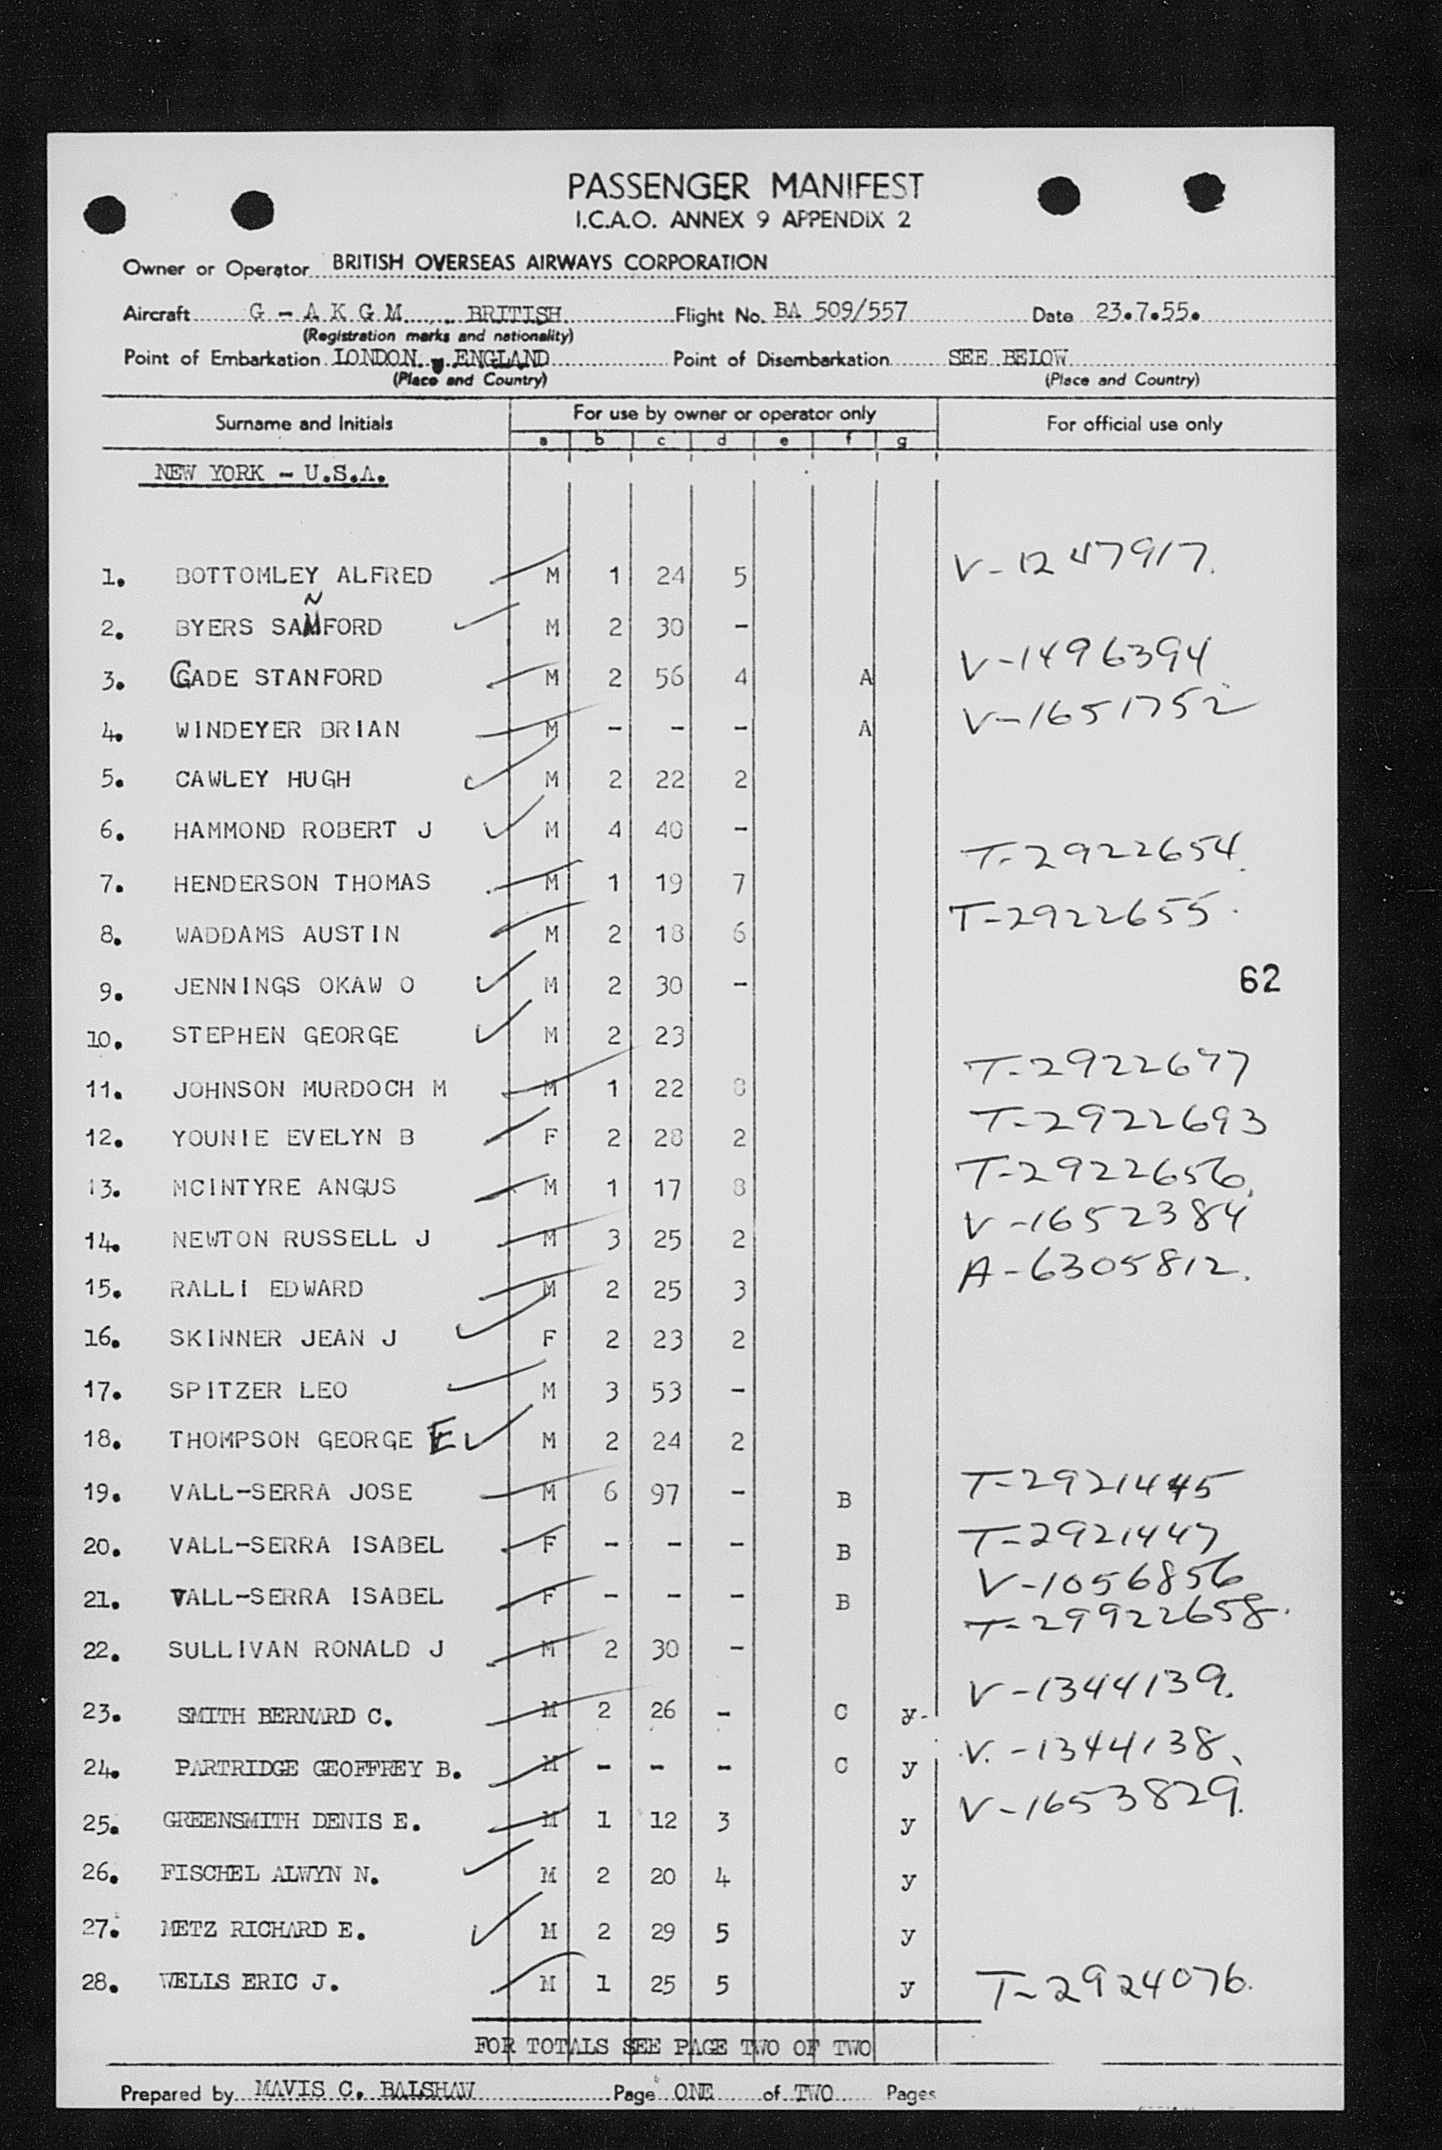 PASSENGER MANIFEST
I.C.A.O. ANNEX 9 APPENDIX 2
Owner or Operator BRITISH OVERSEAS AIRWAYS CORPORATION
Aircraft G - A K G M BRITISH Flight No. BA 509/557 Date 23.7.55.
(Registration marks and nationality)
Point of Embarkation LONDON, ENGLAND Point of Disembarkation SEE BELOW
(Place and Country) (Place and Country)
Surname and Initials For use by owner or operator only For official use only
a b c d e f g
NEW YORK - U.S.A.
1. BOTTOMLEY ALFRED M 1 24 5 V-1247917.
N
2. BYERS SAMFORD M 2 30 -
3. GADE STANFORD M 2 56 4 A V-1496394
4. WINDEYER BRIAN M - - - A V-1651752
5. CAWLEY HUGH M 2 22 2
6. HAMMOND ROBERT J M 4 40 -
7. HENDERSON THOMAS M 1 19 7 T-2922654.
8. WADDAMS AUSTIN M 2 18 6 T-2922655.
9. JENNINGS OKAW O M 2 30 - 62
10. STEPHEN GEORGE M 2 23
11. JOHNSON MURDOCH M M 1 22 8 T-2922677
12. YOUNIE EVELYN B F 2 28 2 T-2922693
13. MCINTYRE ANGUS M 1 17 8 T-2922656.
14. NEWTON RUSSELL J M 3 25 2 V-1652384
15. RALLI EDWARD M 2 25 3 A-6305812.
16. SKINNER JEAN J F 2 23 2
17. SPITZER LEO M 3 53 -
18. THOMPSON GEORGE E M 2 24 2
19. VALL-SERRA JOSE M 6 97 - B T-2921445
20. VALL-SERRA ISABEL F - - - B T-2921447
21. VALL-SERRA ISABEL F - - - B V-1056856
22. SULLIVAN RONALD J M 2 30 - T-29922658.
23. SMITH BERNARD C. M 2 26 - C y V-1344139.
24. PARTRIDGE GEOFFREY B. M - - - C y V.-1344138
25. GREENSMITH DENIS E. M 1 12 3 y V-1653829.
26. FISCHEL ALWYN N. M 2 20 4 y
27. METZ RICHARD E. M 2 29 5 y
28. WELLS ERIC J. M 1 25 5 y T-2924076.
FOR TOTALS SEE PAGE TWO OF TWO
Prepared by MAVIS C. BALSHAW Page ONE of TWO Pages